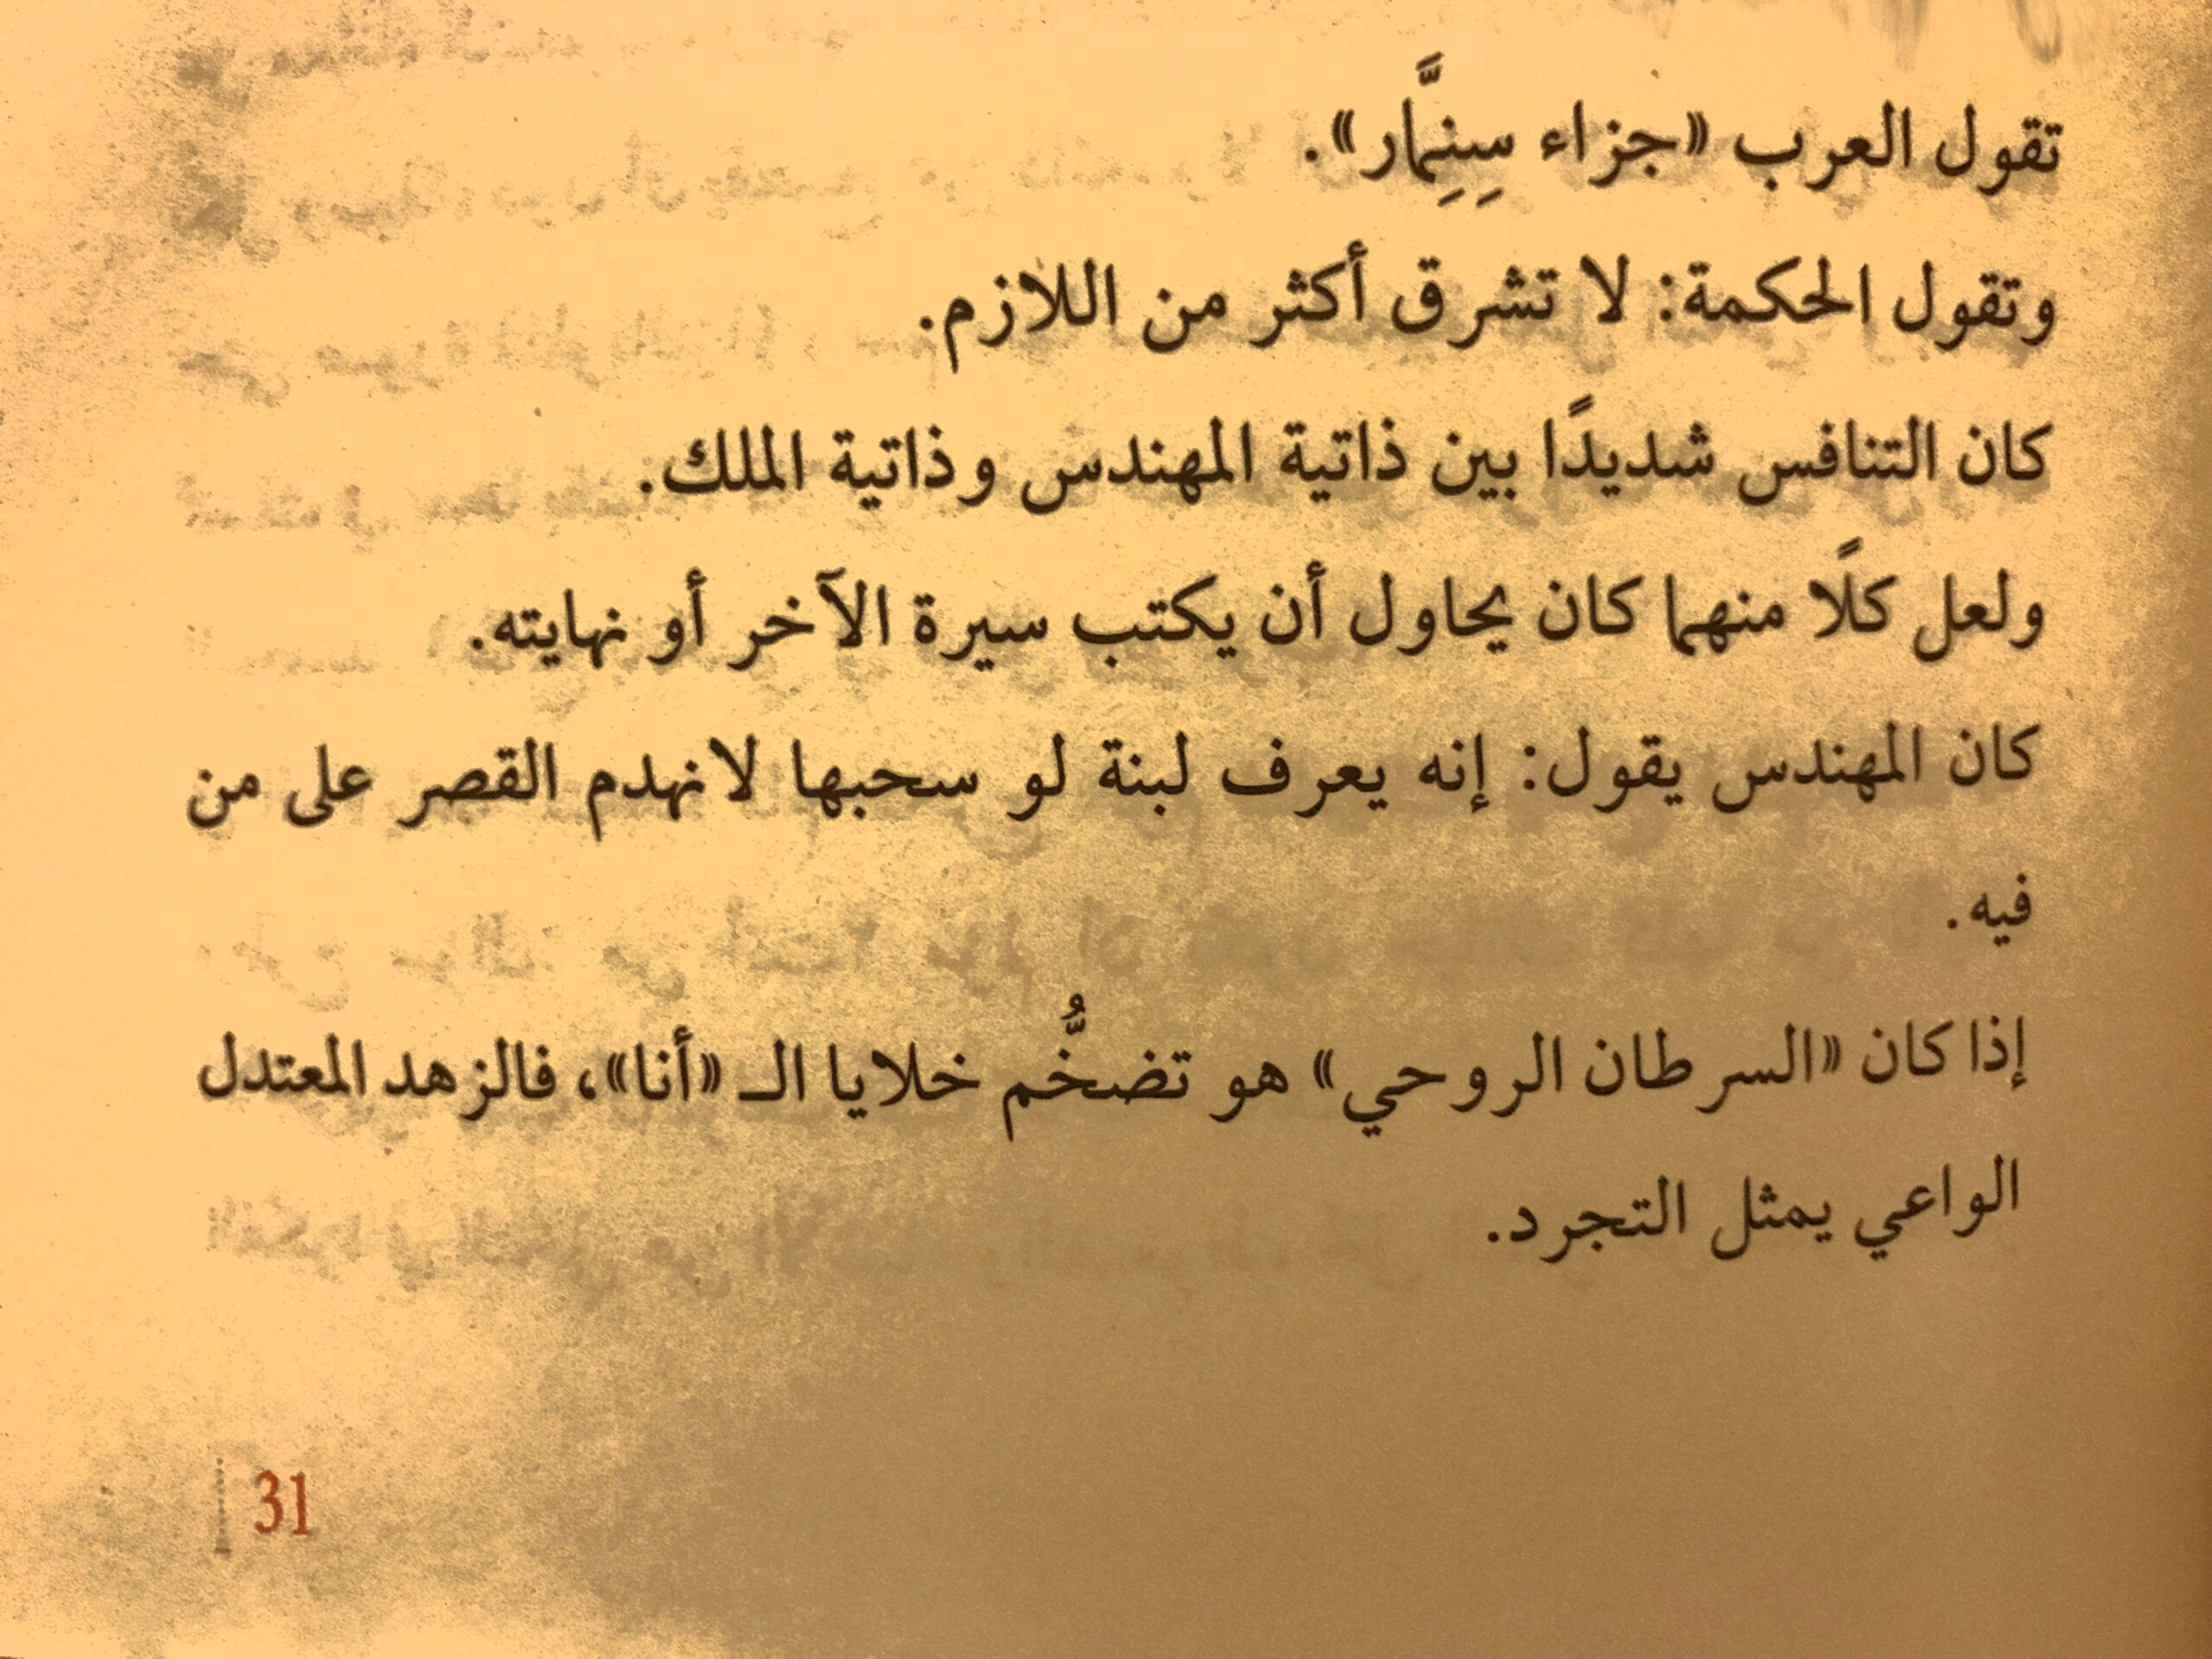 تقول العرب «جزاء سِنِمَّار».
وتقول الحكمة: لا تشرق أكثر من اللازم.
كان التنافس شديدًا بين ذاتية المهندس وذاتية الملك.
ولعل كلًا منهما كان يحاول أن يكتب سيرة الآخر أو نهايته.
كان المهندس يقول: إنه يعرف لبنة لو سحبها لانهدم القصر على من
فيه.
إذا كان «السرطان الروحي» هو تضخُّم خلايا الـ «أنا»، فالزهد المعتدل
الواعي يمثل التجرد.
31